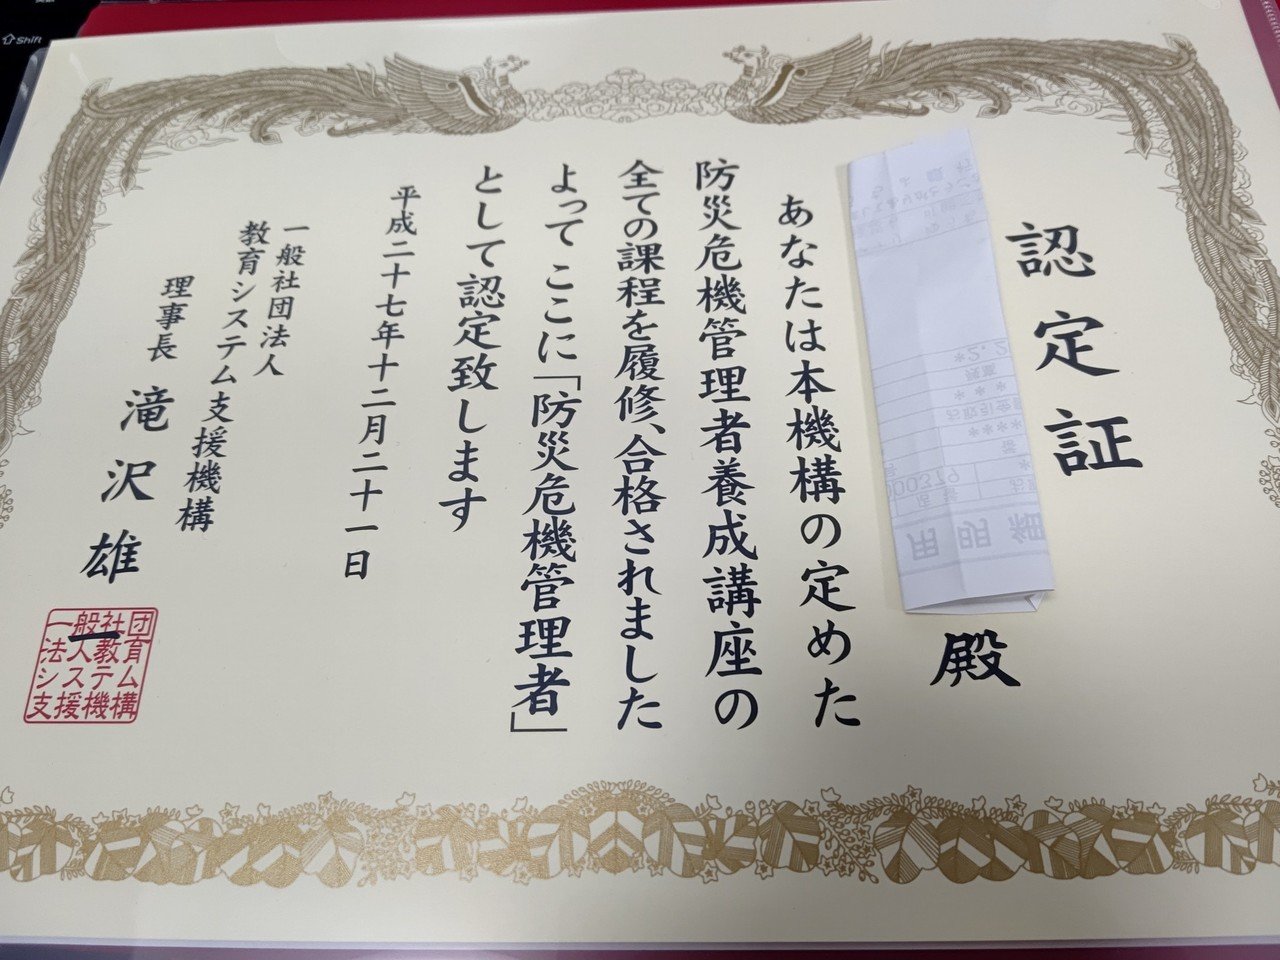 認定証
殿
あなたは本機構の定めた
防災危機管理者養成講座の
全ての課程を履修、合格されました
よってここに「防災危機管理者」
として認定致します
平成二十七年十二月二十一日
一般社団法人
教育システム支援機構
理事長 滝沢雄一
一般社団
法人教育
システム
支援機構
用明細
000379
Shift